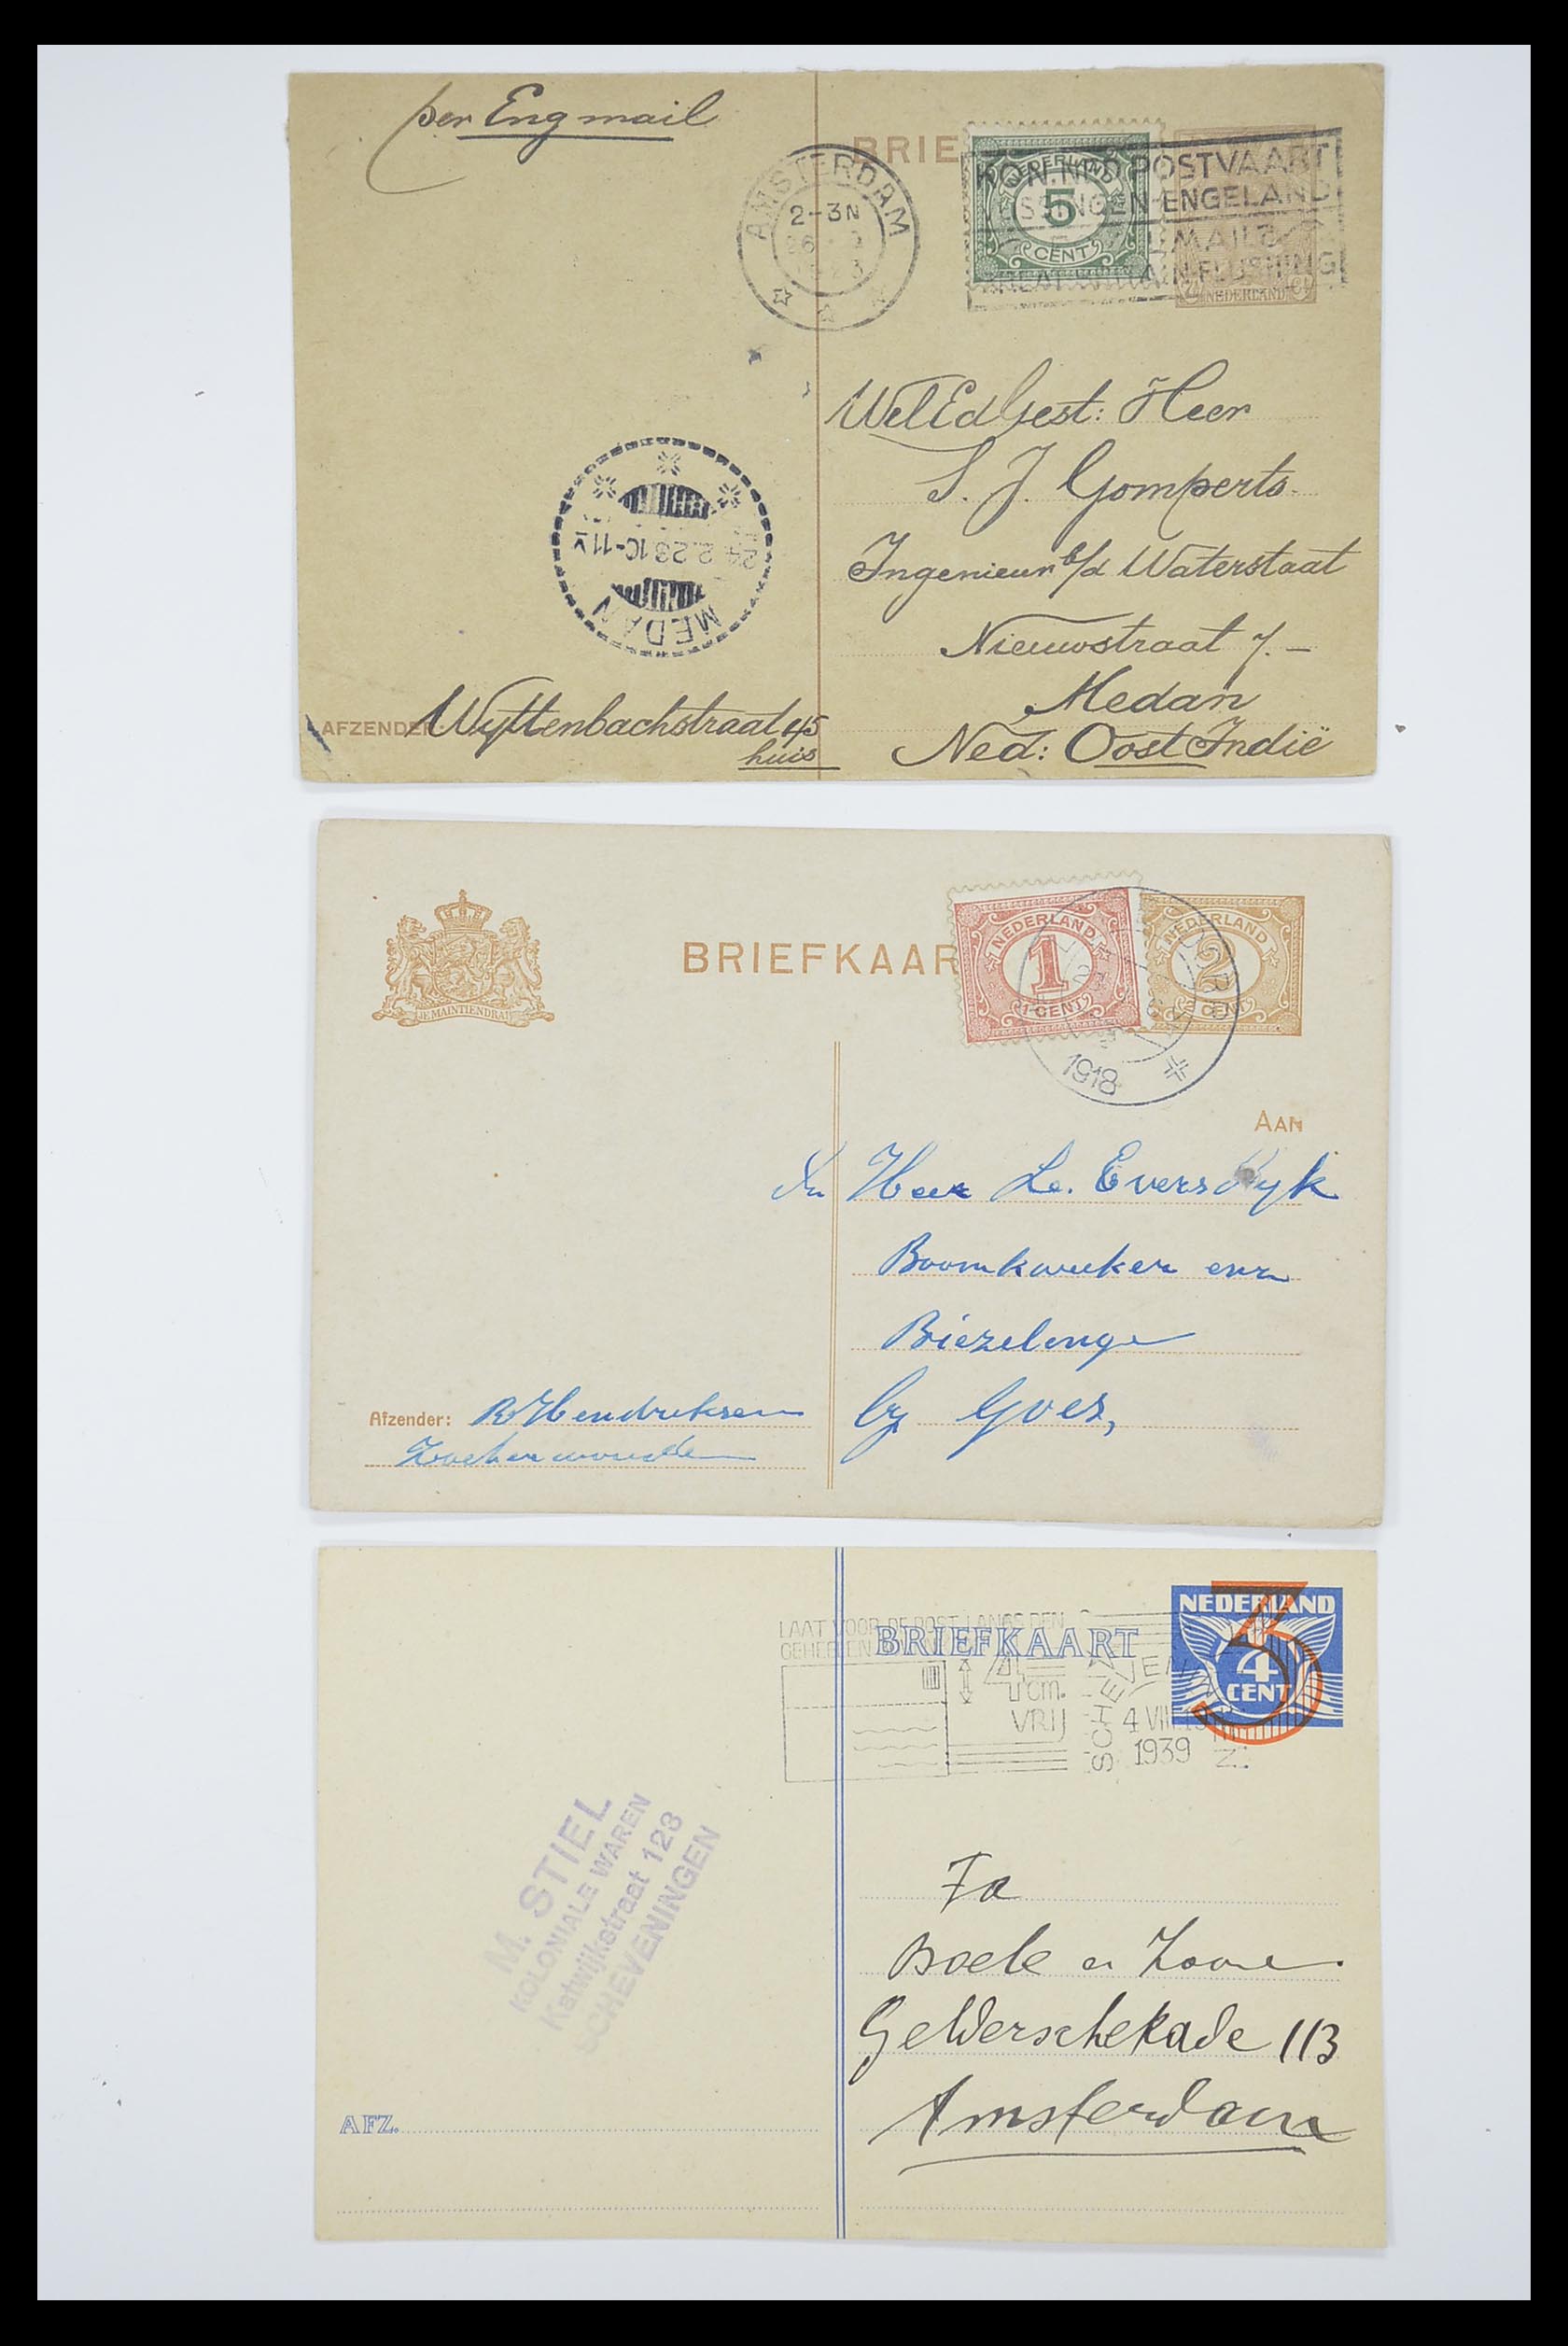 per Eng mail
BRIE
NEDERLAND
5
CENT
KON. NED. POSTVAART
VLISSINGEN-ENGELAND
MAILS
GREAT BRITAIN-FLUSHING
NEDERLAND
AMSTERDAM
2-3N
WelEdGest: Heer
S. J. Gomperts
Ingenieur b/d Waterstaat
Nieuwstraat 7.-
Medan
Ned: Oost Indië
24.2.23 10-11V
MEDAN
AFZENDER: Wyttenbachstraat 45
huis
JE MAINTIENDRAI
BRIEFKAAR
NEDERLAND
1
1 CENT
NEDERLAND
2
CENT
1918
AAN
Den Heer Le. Eversdyk
Boomkweeker enz
Biezelinge
by Goes,
Afzender: B Hendriksen
Zoeterwoude
LAAT VOOR DE POST LANGS DEN
GEHEELEN
4 cm.
VRIJ
BRIEFKAART
NEDERLAND
3
4
CENT
SCHEVENINGEN
4 VIII
1939
M. STIEL
KOLONIALE WAREN
Katwijkstraat 123
SCHEVENINGEN
Fa
Boele en Zoon
Gelderschekade 113
Amsterdam
AFZ.